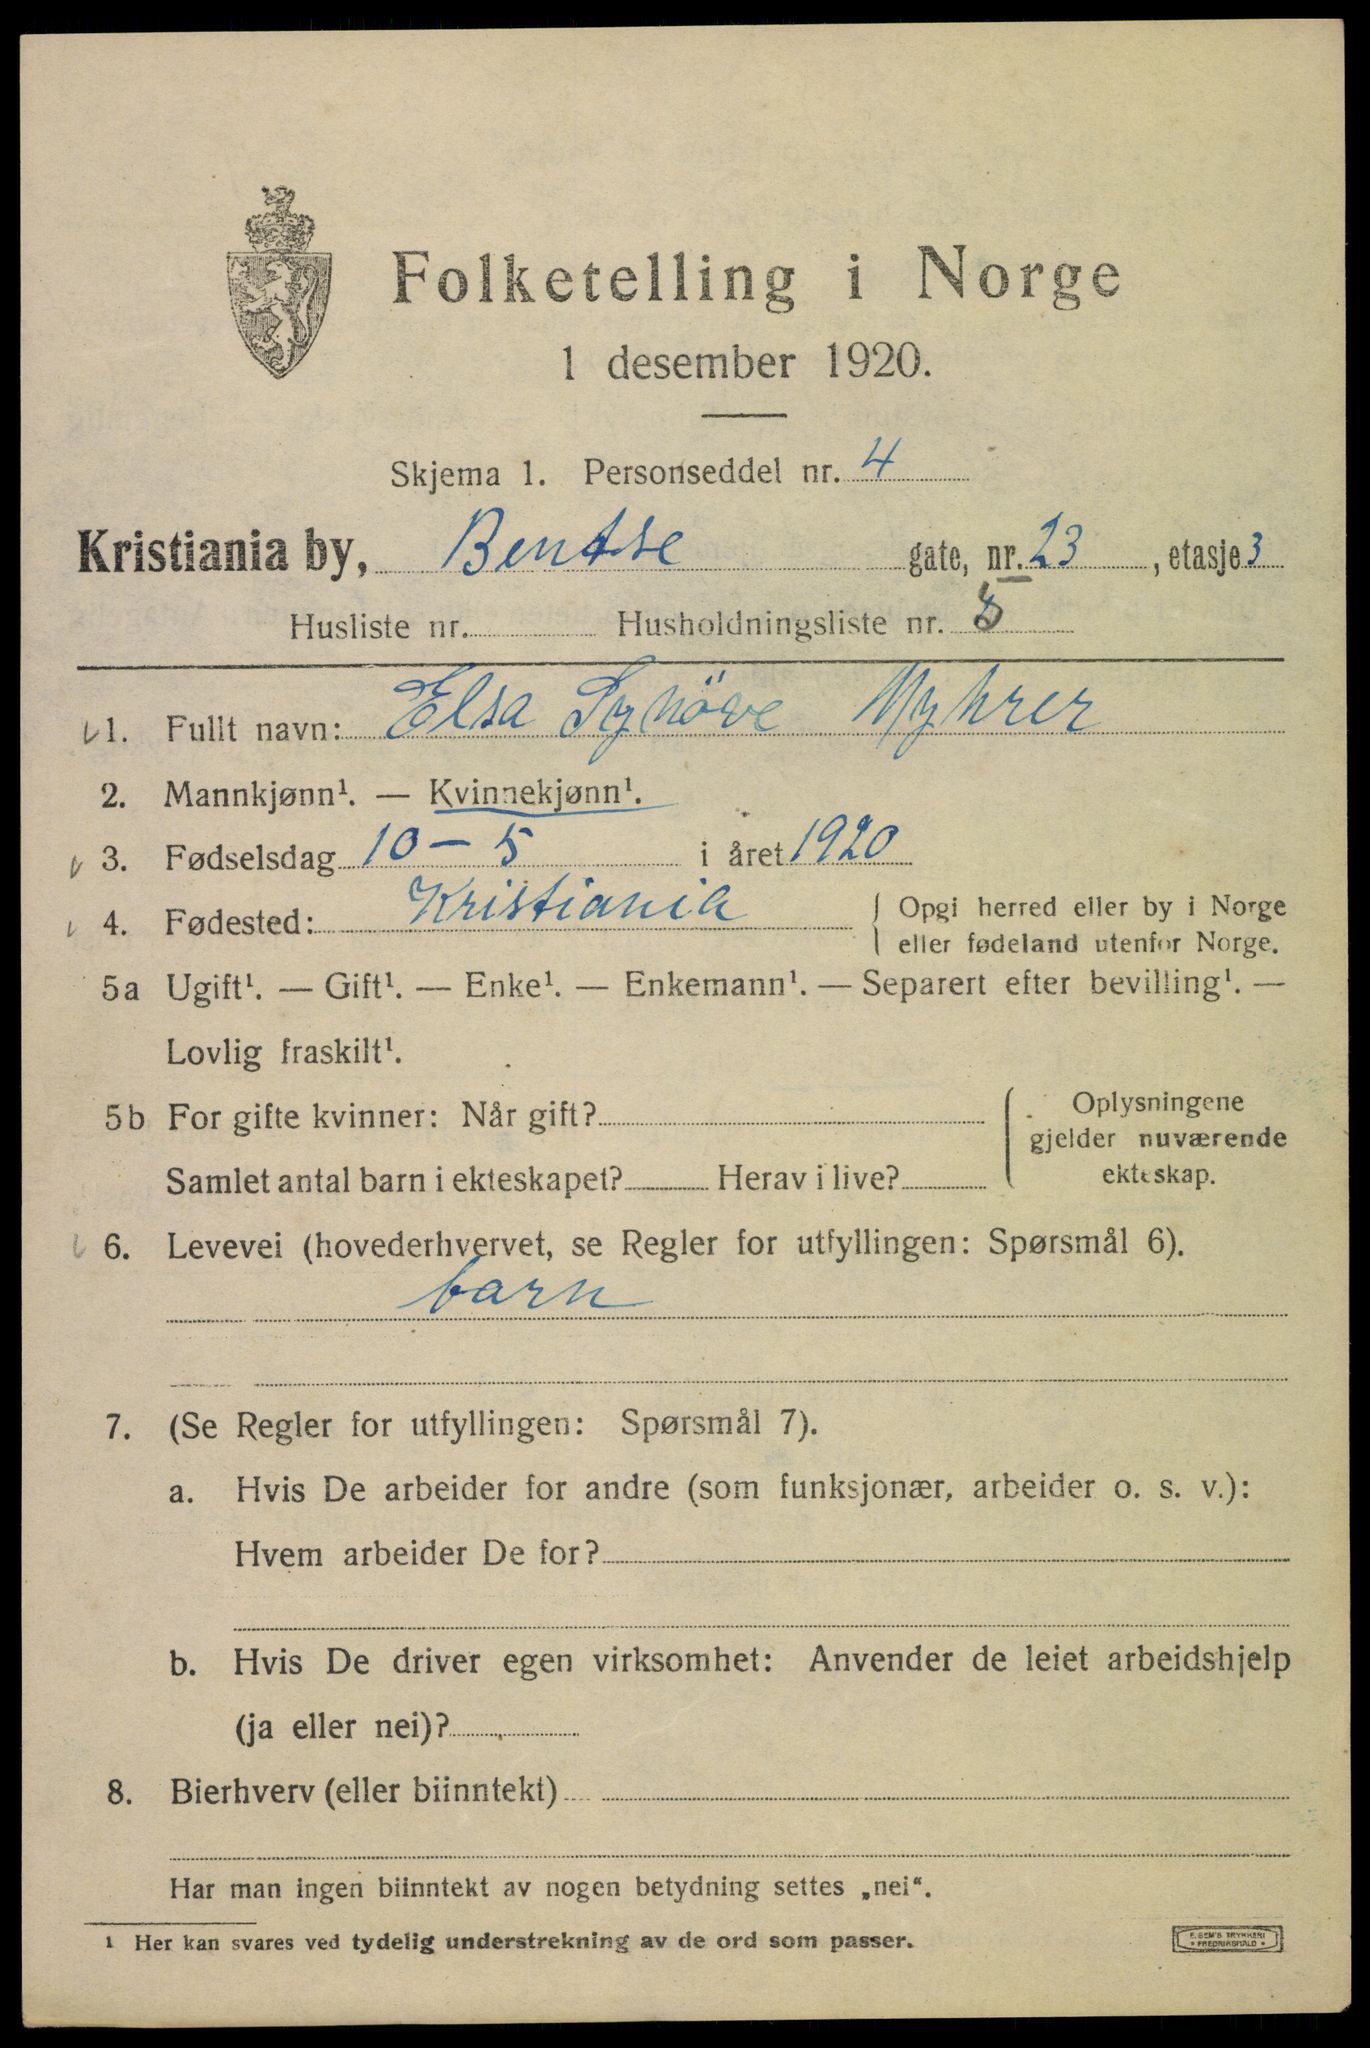 Folketelling i Norge
1 desember 1920.
Skjema 1. Personseddel nr. 4
Kristiania by, Bentse gate, nr. 23, etasje 3
Husliste nr. Husholdningsliste nr.
1. Fullt navn: Elsa Synöve Myhrer
2. Mannkjønn¹. — Kvinnekjønn¹.
3. Fødselsdag 10 – 5 i året 1920
4. Fødested: Kristiania
Opgi herred eller by i Norge
eller fødeland utenfor Norge.
5a Ugift¹. — Gift¹. — Enke¹. — Enkemann¹. — Separert efter bevilling¹. —
Lovlig fraskilt¹.
5b For gifte kvinner: Når gift?
Samlet antal barn i ekteskapet? Herav i live?
Oplysningene
gjelder nuværende
ekteskap.
6. Levevei (hovederhvervet, se Regler for utfyllingen: Spørsmål 6).
barn
7. (Se Regler for utfyllingen: Spørsmål 7).
a. Hvis De arbeider for andre (som funksjonær, arbeider o. s. v.):
Hvem arbeider De for?
b. Hvis De driver egen virksomhet: Anvender de leiet arbeidshjelp
(ja eller nei)?
8. Bierhverv (eller biinntekt)
Har man ingen biinntekt av nogen betydning settes „nei“.
¹ Her kan svares ved tydelig understrekning av de ord som passer.
E. SEM'S TRYKKERI
FREDRIKSHALD